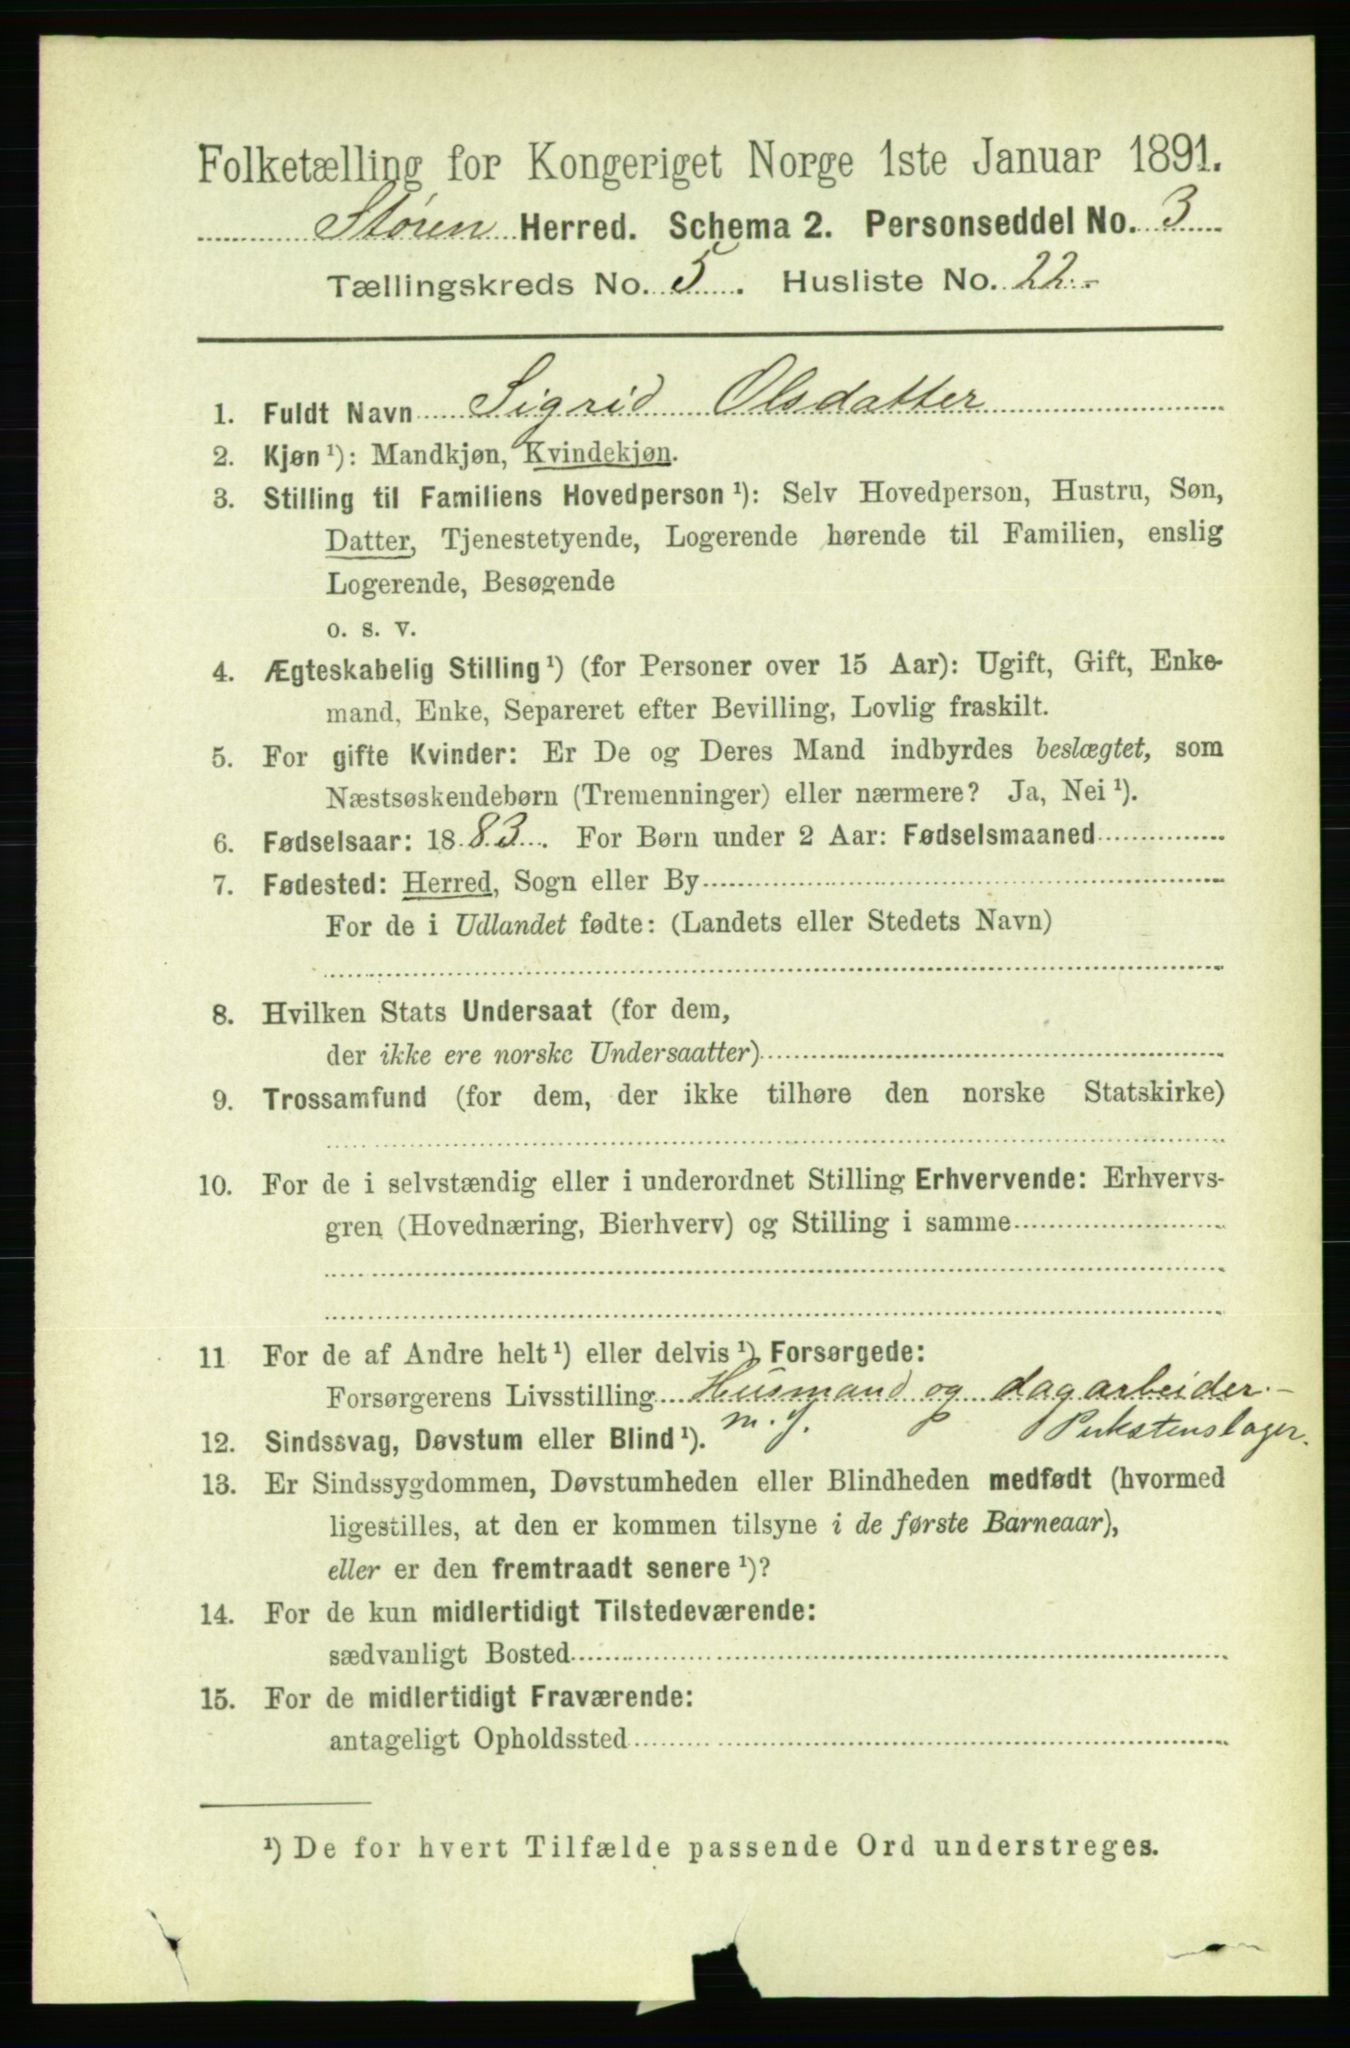 Folketælling for Kongeriget Norge 1ste Januar 1891.
Støren Herred. Schema 2. Personseddel No. 3
Tællingskreds No. 5. Husliste No. 22.-
1. Fuldt Navn Sigrid Olsdatter
2. Kjøn ¹): Mandkjøn, Kvindekjøn.
3. Stilling til Familiens Hovedperson ¹): Selv Hovedperson, Hustru, Søn,
Datter, Tjenestetyende, Logerende hørende til Familien, enslig
Logerende, Besøgende
o. s. v.
4. Ægteskabelig Stilling ¹) (for Personer over 15 Aar): Ugift, Gift, Enke-
mand, Enke, Separeret efter Bevilling, Lovlig fraskilt.
5. For gifte Kvinder: Er De og Deres Mand indbyrdes beslægtet, som
Næstsøskendebørn (Tremenninger) eller nærmere? Ja, Nei ¹).
6. Fødselsaar: 1883. For Børn under 2 Aar: Fødselsmaaned
7. Fødested: Herred, Sogn eller By
For de i Udlandet fødte: (Landets eller Stedets Navn)
8. Hvilken Stats Undersaat (for dem,
der ikke ere norske Undersaatter)
9. Trossamfund (for dem, der ikke tilhøre den norske Statskirke)
10. For de i selvstændig eller i underordnet Stilling Erhvervende: Erhvervs-
gren (Hovednæring, Bierhverv) og Stilling i samme
11 For de af Andre helt ¹) eller delvis ¹) Forsørgede:
Forsørgerens Livsstilling Husmand og dagarbeider.-
m. J. Pukstenslager.
12. Sindssvag, Døvstum eller Blind ¹).
13. Er Sindssygdommen, Døvstumheden eller Blindheden medfødt (hvormed
ligestilles, at den er kommen tilsyne i de første Barneaar),
eller er den fremtraadt senere ¹)?
14. For de kun midlertidigt Tilstedeværende:
sædvanligt Bosted
15. For de midlertidigt Fraværende:
antageligt Opholdssted
¹) De for hvert Tilfælde passende Ord understreges.